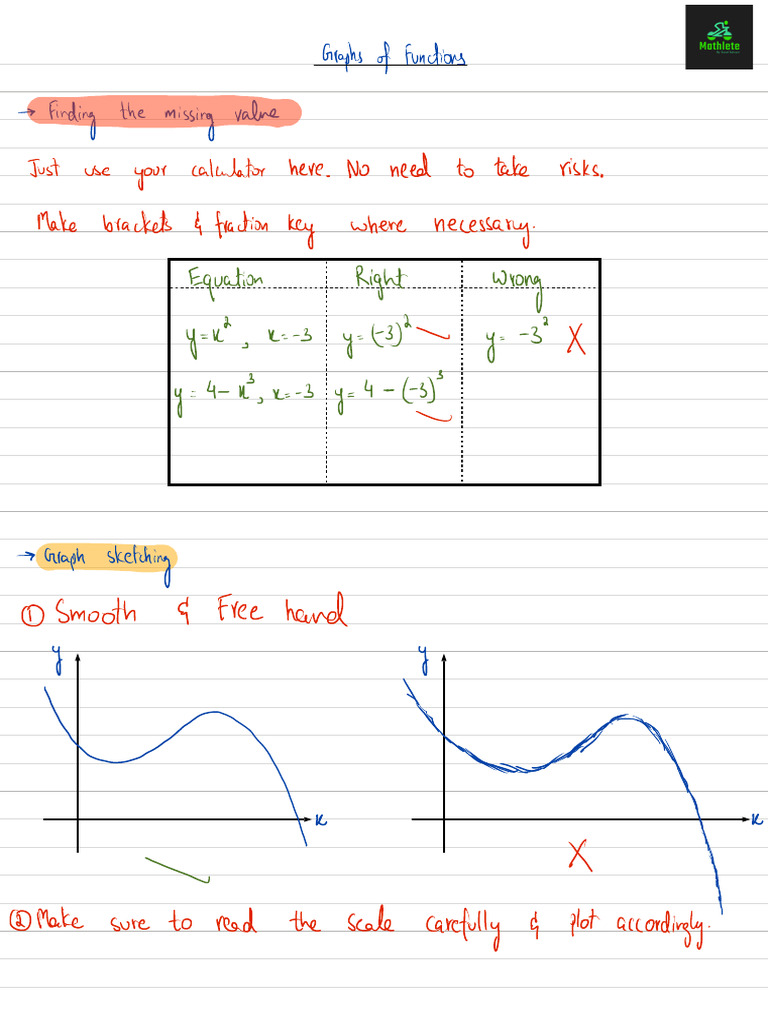 Mathlete
Graphs of Functions
→ Finding the missing value
Just use your calculator here. No need to take risks.
Make brackets & fraction key where necessary.
Equation Right Wrong
y=x², x=-3 y=(-3)² y= -3² X
y= 4-x³, x=-3 y= 4-(-3)³
→ Graph sketching
① Smooth & Free hand
y y
x x
X
② Make sure to read the scale carefully & plot accordingly.